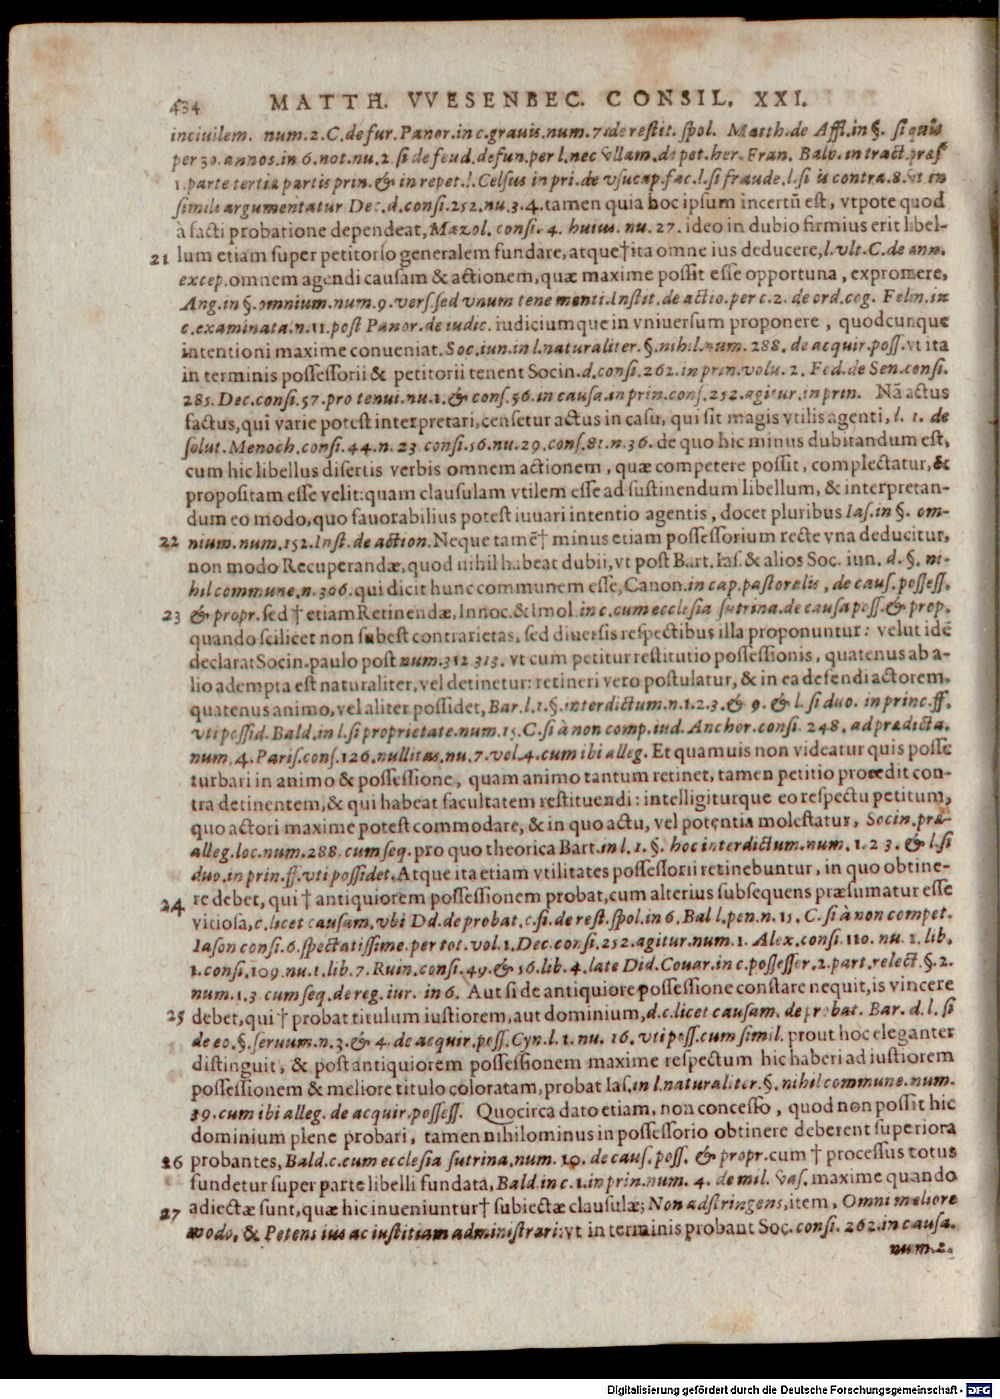 434 MATTH. VVESENBEC. CONSIL. XXI.
inciuilem. num.2.C.de fur. Panor.in c.grauis.num.7.de restit. spol. Matth.de Affl.in §. si quis
per 30. annos.in 6. not.nu.2. si de feud.defun.per l.nec vllam.de pet.her. Fran. Balb.in tract.præs
1.parte tertia partis prin. & in repet.l.Celsus in pri.de vsucap.fac.l.si fraude.l.si is contra.8.vt in
simili argumentatur Dec.d.consi.252.nu.3.4.tamen quia hoc ipsum incertũ est, vtpote quod
à facti probatione dependeat, Mazol. consi. 4. huius. nu. 27. ideo in dubio firmius erit libel-
21 lum etiam super petitorio generalem fundare, atque†ita omne ius deducere, l.vlt.C.de ann.
excep.omnem agendi causam & actionem, quæ maxime possit esse opportuna, expromere,
Ang.in §.omnium.num.9.vers.sed vnum tene menti.Instit.de actio.per c.2. de ord.cog. Felin.in
c.examinata.n.11.post Panor.de iudic. iudiciumque in vniuersum proponere, quodcunque
intentioni maxime conueniat. Soc.iun.in l.naturaliter.§.nihil.num. 288. de acquir.poss.vt ita
in terminis possessorii & petitorii tenent Socin.d.consi.262.in prin.volu.2. Fed.de Sen.consi.
285. Dec.consi.57.pro tenui.nu.1.& cons.56.in causa.in prin.cons.252.agitur.in prin. Nã actus
factus, qui varie potest interpretari, censetur actus in casu, qui sit magis vtilis agenti, l. 1. de
solut.Menoch.consi.44.n.23 consi.56.nu.29.cons.81.n.36. de quo hic minus dubitandum est,
cum hic libellus disertis verbis omnem actionem, quæ competere possit, complectatur, &
propositam esse velit: quam clausulam vtilem esse ad sustinendum libellum, & interpretan-
dum eo modo, quo fauorabilius potest iuuari intentio agentis, docet pluribus Ias.in §. om-
22 nium.num.152.Inst.de action. Neque tamẽ† minus etiam possessorium recte vna deducitur,
non modo Recuperandæ, quod nihil habeat dubii, vt post Bart. Ias. & alios Soc. iun. d. §. ni-
hil commune.n.306. qui dicit hunc communem esse, Canon.in cap.pastoralis, de caus.possess.
23 & propr. sed † etiam Retinendæ, Innoc.& Imol.in c.cum ecclesia sutrina.de causa poss.& prop.
quando scilicet non subest contrarietas, sed diuersis respectibus illa proponuntur: velut idẽ
declarat Socin.paulo post num.312 313. vt cum petitur restitutio possessionis, quatenus ab a-
lio adempta est naturaliter, vel detinetur: retineri vero postulatur, & in ea defendi actorem.
quatenus animo, vel aliter possidet, Bar.l.1.§.interdictum.n.1.2.3.& 9. & l. si duo. in princ.ff.
vti possid. Bald.in l.si proprietate.num.15.C.si à non comp.iud. Anchor.consi. 248. ad prædicta.
num. 4. Paris.cons.126.nullitas.nu.7.vol.4.cum ibi alleg. Et quamuis non videatur quis posse
turbari in animo & possessione, quam animo tantum retinet, tamen petitio procedit con-
tra detinentem, & qui habeat facultatem restituendi: intelligiturque eo respectu petitum,
quo actori maxime potest commodare, & in quo actu, vel potentia molestatur, Socin.præ-
alleg.loc.num.288. cum seq. pro quo theorica Bart.in l. 1. §. hoc interdictum.num. 1. 2 3. & l.si
duo.in prin.ff.vti possidet. Atque ita etiam vtilitates possessorii retinebuntur, in quo obtine-
24 re debet, qui † antiquiorem possessionem probat, cum alterius subsequens præsumatur esse
vitiosa, c.licet causam.vbi Dd.de probat.c.si.de rest.spol.in 6.Bal l.pen.n.15. C.si à non compet.
Iason consi.6.spectatissime.per tot.vol.1.Dec.consi.252.agitur.num.1. Alex.consi.110. nu. 1. lib.
1.consi.109.nu.1.lib.7.Ruin.consi.49.& 56.lib.4.late Did.Couar.in c.possessor.2.part.relect.§.2.
num.1.3 cum seq.de reg.iur. in 6. Aut si de antiquiore possessione constare nequit, is vincere
25 debet, qui † probat titulum iustiorem, aut dominium, d.c.licet causam. de probat. Bar. d.l. si
de eo.§.seruum.n.3.& 4.de acquir.poss.Cyn.l.1.nu. 16. vti poss.cum simil. prout hoc eleganter
distinguit, & post antiquiorem possessionem maxime respectum hic haberi ad iustiorem
possessionem & meliore titulo coloratam, probat Ias.in l.naturaliter.§.nihil commune.num.
39.cum ibi alleg. de acquir.possess. Quocirca dato etiam, non concesso, quod non possit hic
dominium plene probari, tamen nihilominus in possessorio obtinere deberent superiora
26 probantes, Bald.c.cum ecclesia sutrina.num. 10. de caus. poss. & propr.cum † processus totus
fundetur super parte libelli fundata, Bald.in c.1.in prin.num. 4. de mil. vas. maxime quando
27 adiectæ sunt, quæ hic inueniuntur† subiectæ clausulæ; Non adstringens, item, Omni meliore
modo, & Petens ius ac iustitiam administrari: vt in terminis probant Soc. consi. 262.in causa.
num.2.
Digitalisierung gefördert durch die Deutsche Forschungsgemeinschaft - DFG